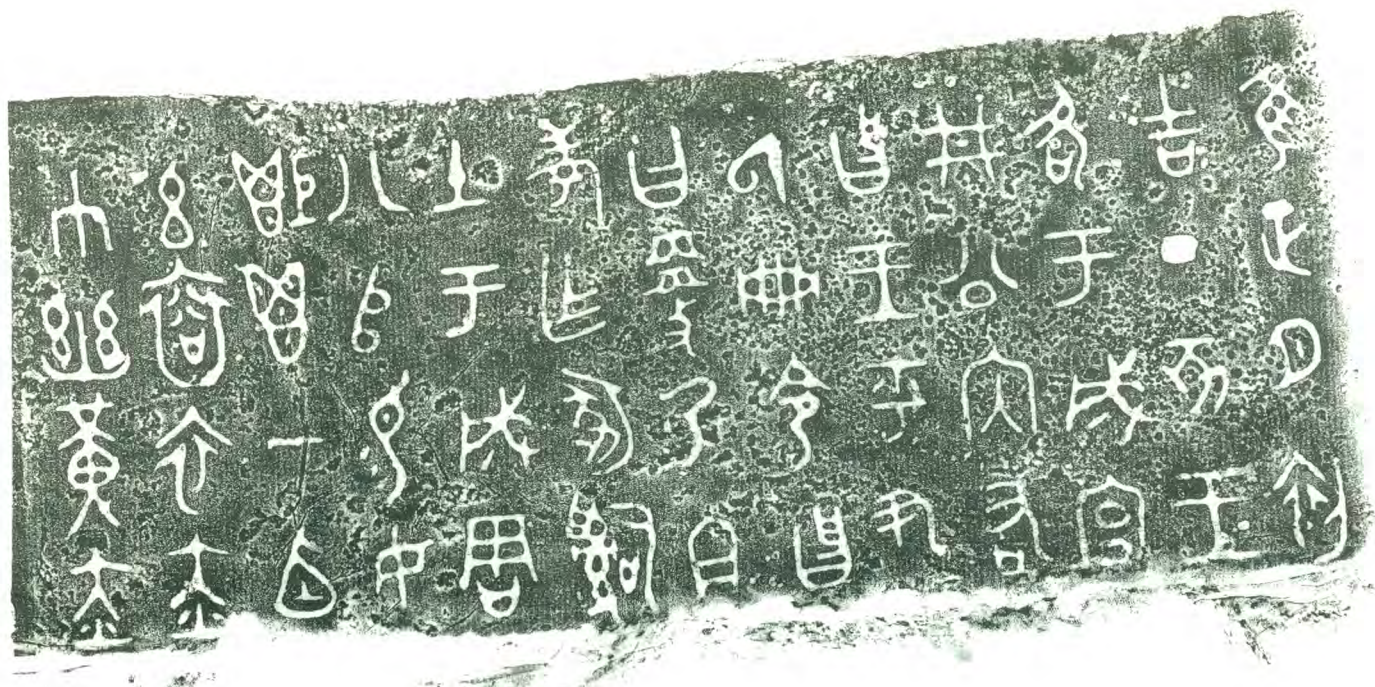 隹正月初
吉丁亥王
各于成宫
井公内右
曶王乎尹
氏册令曶
曰更乃且
考乍冢𤔲
土于成周
八𠂤易女
秬鬯一卣
玄袞衣赤
巿幽黄赤